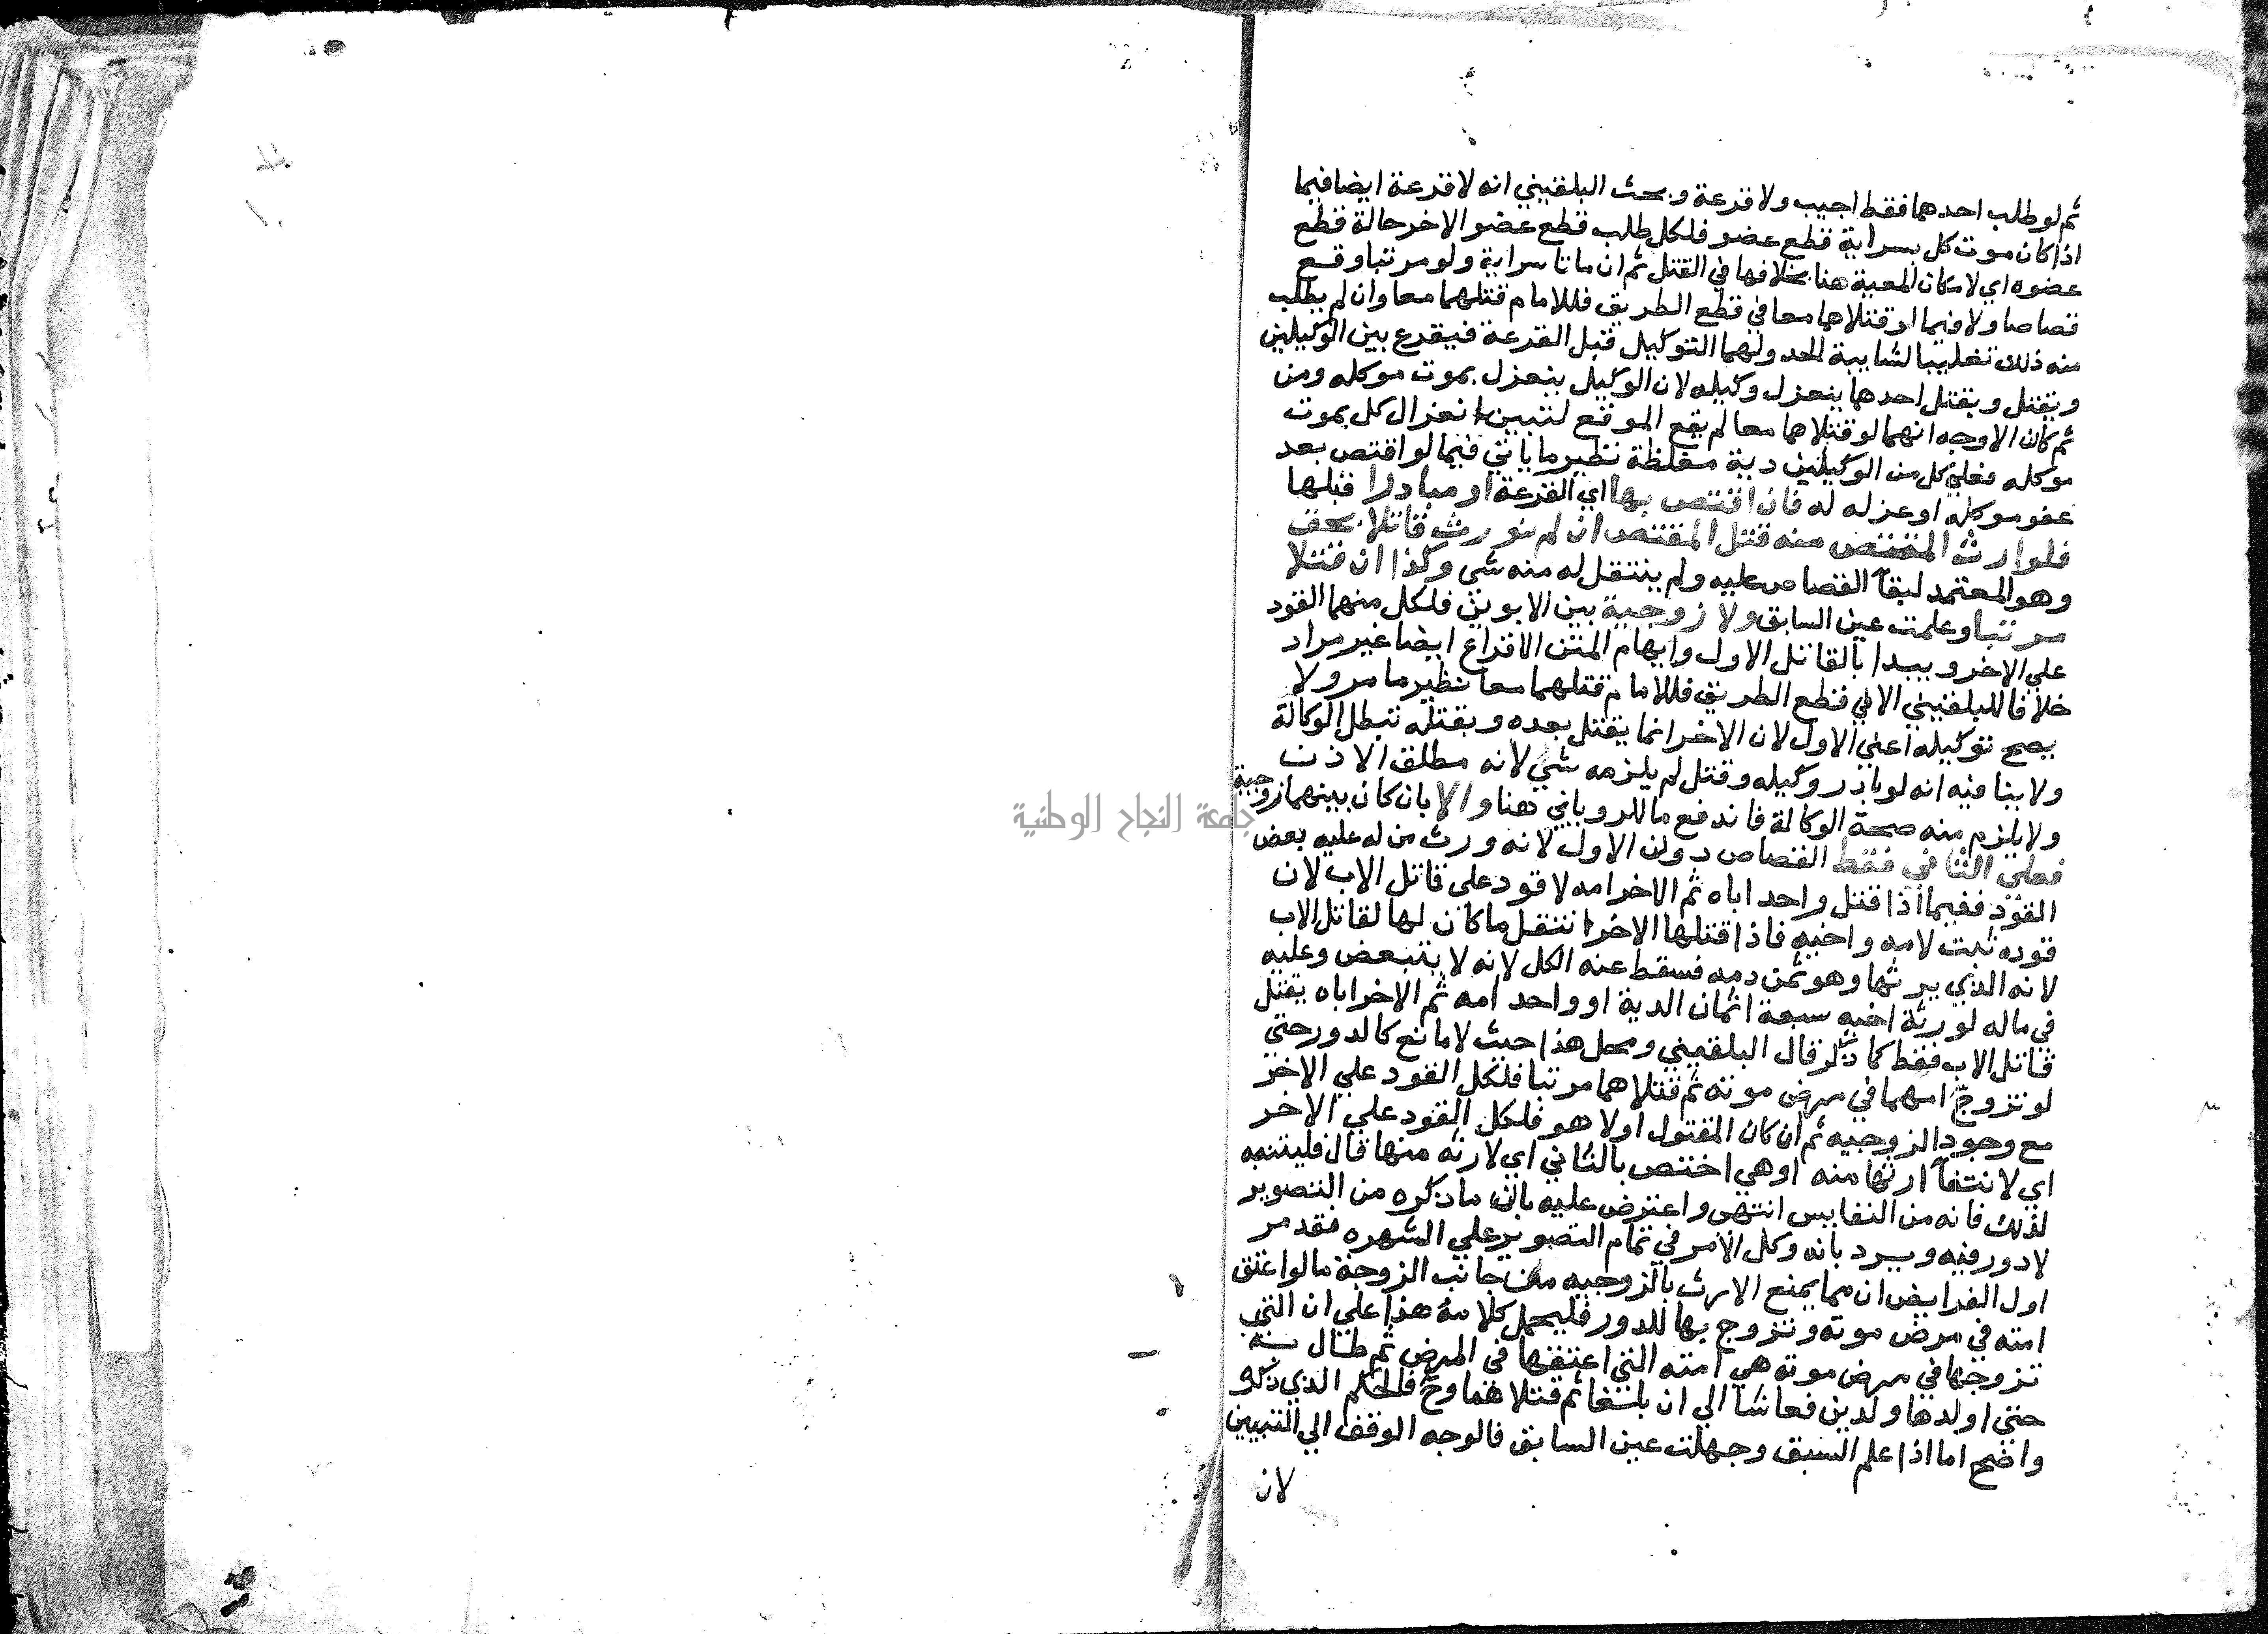 ثم لو طلب احدهما فقط اجيب ولا قرعة وبحث البلقيني انه لا قرعة ايضا فيما
اذا كان موت كل بسراية قطع عضو فلكل طلب قطع عضو الاخر حالة قطع
عضوه اي لامكان المعية هنا بخلافها في القتل ثم ان ماتا سراية ولو مرتبا وقع
قصاصا ولا فيما لو قتلاهما معا في قطع الطريق فللامام قتلهما معا وان لم يطلب
منه ذلك تغليبا لشايبة الحد ولهما التوكيل قبل القرعة فيقرع بين الوكيلين
ويقتل وبقتل احدهما ينعزل وكيله لان الوكيل ينعزل بموت موكله ومن
ثم كان الاوجه انهما لو قتلاهما معا لم يقع الموقع لتبين انعزال كل بموت
موكله فعلي كل من الوكيلين دية مغلظة نظير ما ياتي فيما لو اقتص بعد
عفو موكله او عزله له فان اقتص بها اي القرعة او مبادرا قبلها
فلوارث المقتص منه قتل المقتص ان لم نورث قاتلا بحق
وهو المعتمد لبقآ القصاص عليه ولم ينتقل له منه شي وكذا ان قتلا
مرتبا وعلمت عين السابق ولا زوجية بين الابوين فلكل منهما القود
علي الاخر ويبدا بالقاتل الاول وايهام المتن الاقراع ايضا غير مراد
خلافا للبلقيني الا في قطع الطريق فللامام قتلهما معا نظير ما مر ولا
يصح توكيله اعني الاول لان الاخر انما يقتل بعده وبقتله تبطل الوكالة
ولا ينافيه انه لو بادر وكيله وقتل لم يلزمه شي لانه مطلق الاذن
ولا يلزم منه صحة الوكالة فاندفع ما للروياني هنا والا بان كان بينهما زوجية
فعلي الثاني فقط القصاص دون الاول لانه ورث من له عليه بعض
القود ففيما اذا قتل واحد اباه ثم الاخر امه لا قود علي قاتل الاب لان
قوده ثبت لامه واخيه فاذا قتلها الاخر انتقل ما كان لها لقاتل الاب
لانه الذي يرثها وهو ثمن دمه فسقط عنه الكل لانه لا يتبعض وعليه
في ماله لورثة اخيه سبعة اثمان الدية او واحد امه ثم الاخر اباه يقتل
قاتل الاب فقط كما ذكر قال البلقيني ومحل هذا حيث لا مانع كالدور حتى
لو تزوج امهما في مرض موته ثم قتلاهما مرتبا فلكل القود علي الاخر
مع وجود الزوجيه ثم ان كان المقتول اولا هو فلكل القود علي الاخر
اي لانتفآ ارثها منه او هي اختص بالثاني اي لارثه منها قال فليتنبه
لذلك فانه من النفايس انتهى واعترض عليه بان ما ذكره من التصوير
لا دور فيه ويرد بانه وكل الامر في تمام التصوير علي الشهره فقد مر
اول الفرايض ان مما يمنع الارث بالزوجيه من جانب الزوجة ما لو اعتق
امته في مرض موته وتزوج بها للدور فليحمل كلامه هذا علي ان التي
تزوجها في مرض موته هي امته التي اعتقها في المرض ثم طال به
حتى اولدها ولدين فعاشا الي ان بلغا ثم قتلاهما وح فالحكم الذي ذكره
واضح اما اذا علم السبق وجهلت عين السابق فالوجه الوقف الي التبيين
لان
جامعة النجاح الوطنية